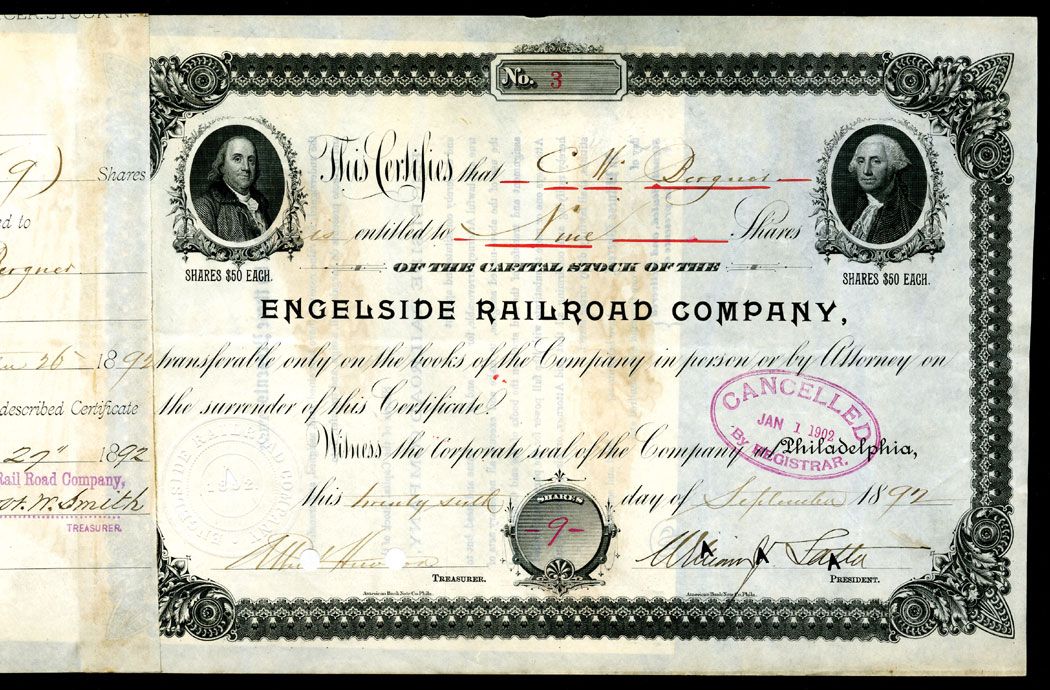 CER. STOCK No.
No. 3
(9) Shares
This Certifies that C. W. Bergner
is entitled to Nine Shares
Bergner
SHARES $50 EACH.
SHARES $50 EACH.
OF THE CAPITAL STOCK OF THE
ENGELSIDE RAILROAD COMPANY,
26 1892
transferable only on the books of the Company in person or by Attorney on
described Certificate
the surrender of this Certificate.
CANCELLED
JAN 1 1902
By REGISTRAR.
Witness the corporate seal of the Company at Philadelphia,
1892
Rail Road Company,
W. Smith
TREASURER.
this twenty sixth day of September 1892
SHARES
9
TREASURER.
William J. Latta
PRESIDENT.
American Bank Note Co. Phila.
American Bank Note Co. Phila.
ENGELSIDE RAILROAD COMPANY